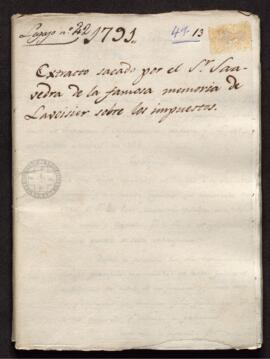 Legajo nº 42
1791.
49. 13
Extracto sacado por el Sr. Saa-
vedra de la famosa memoria de
Lavoisier sobre los impuestos.